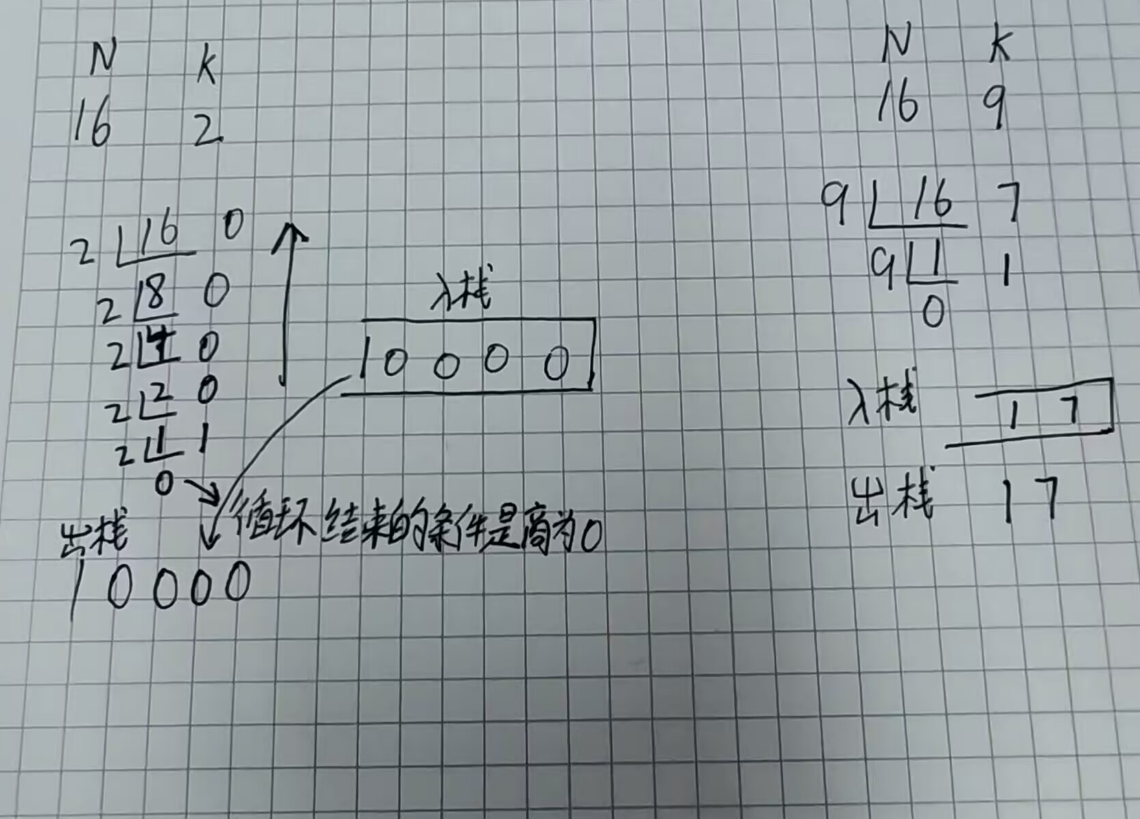 N K
16 2
2 16 0
2 8 0
2 4 0
2 2 0
2 1 1
0
入栈
1 0 0 0 0
循环结束的条件是高为0
出栈
1 0 0 0 0
N K
16 9
9 16 7
9 1 1
0
入栈 1 7
出栈 1 7